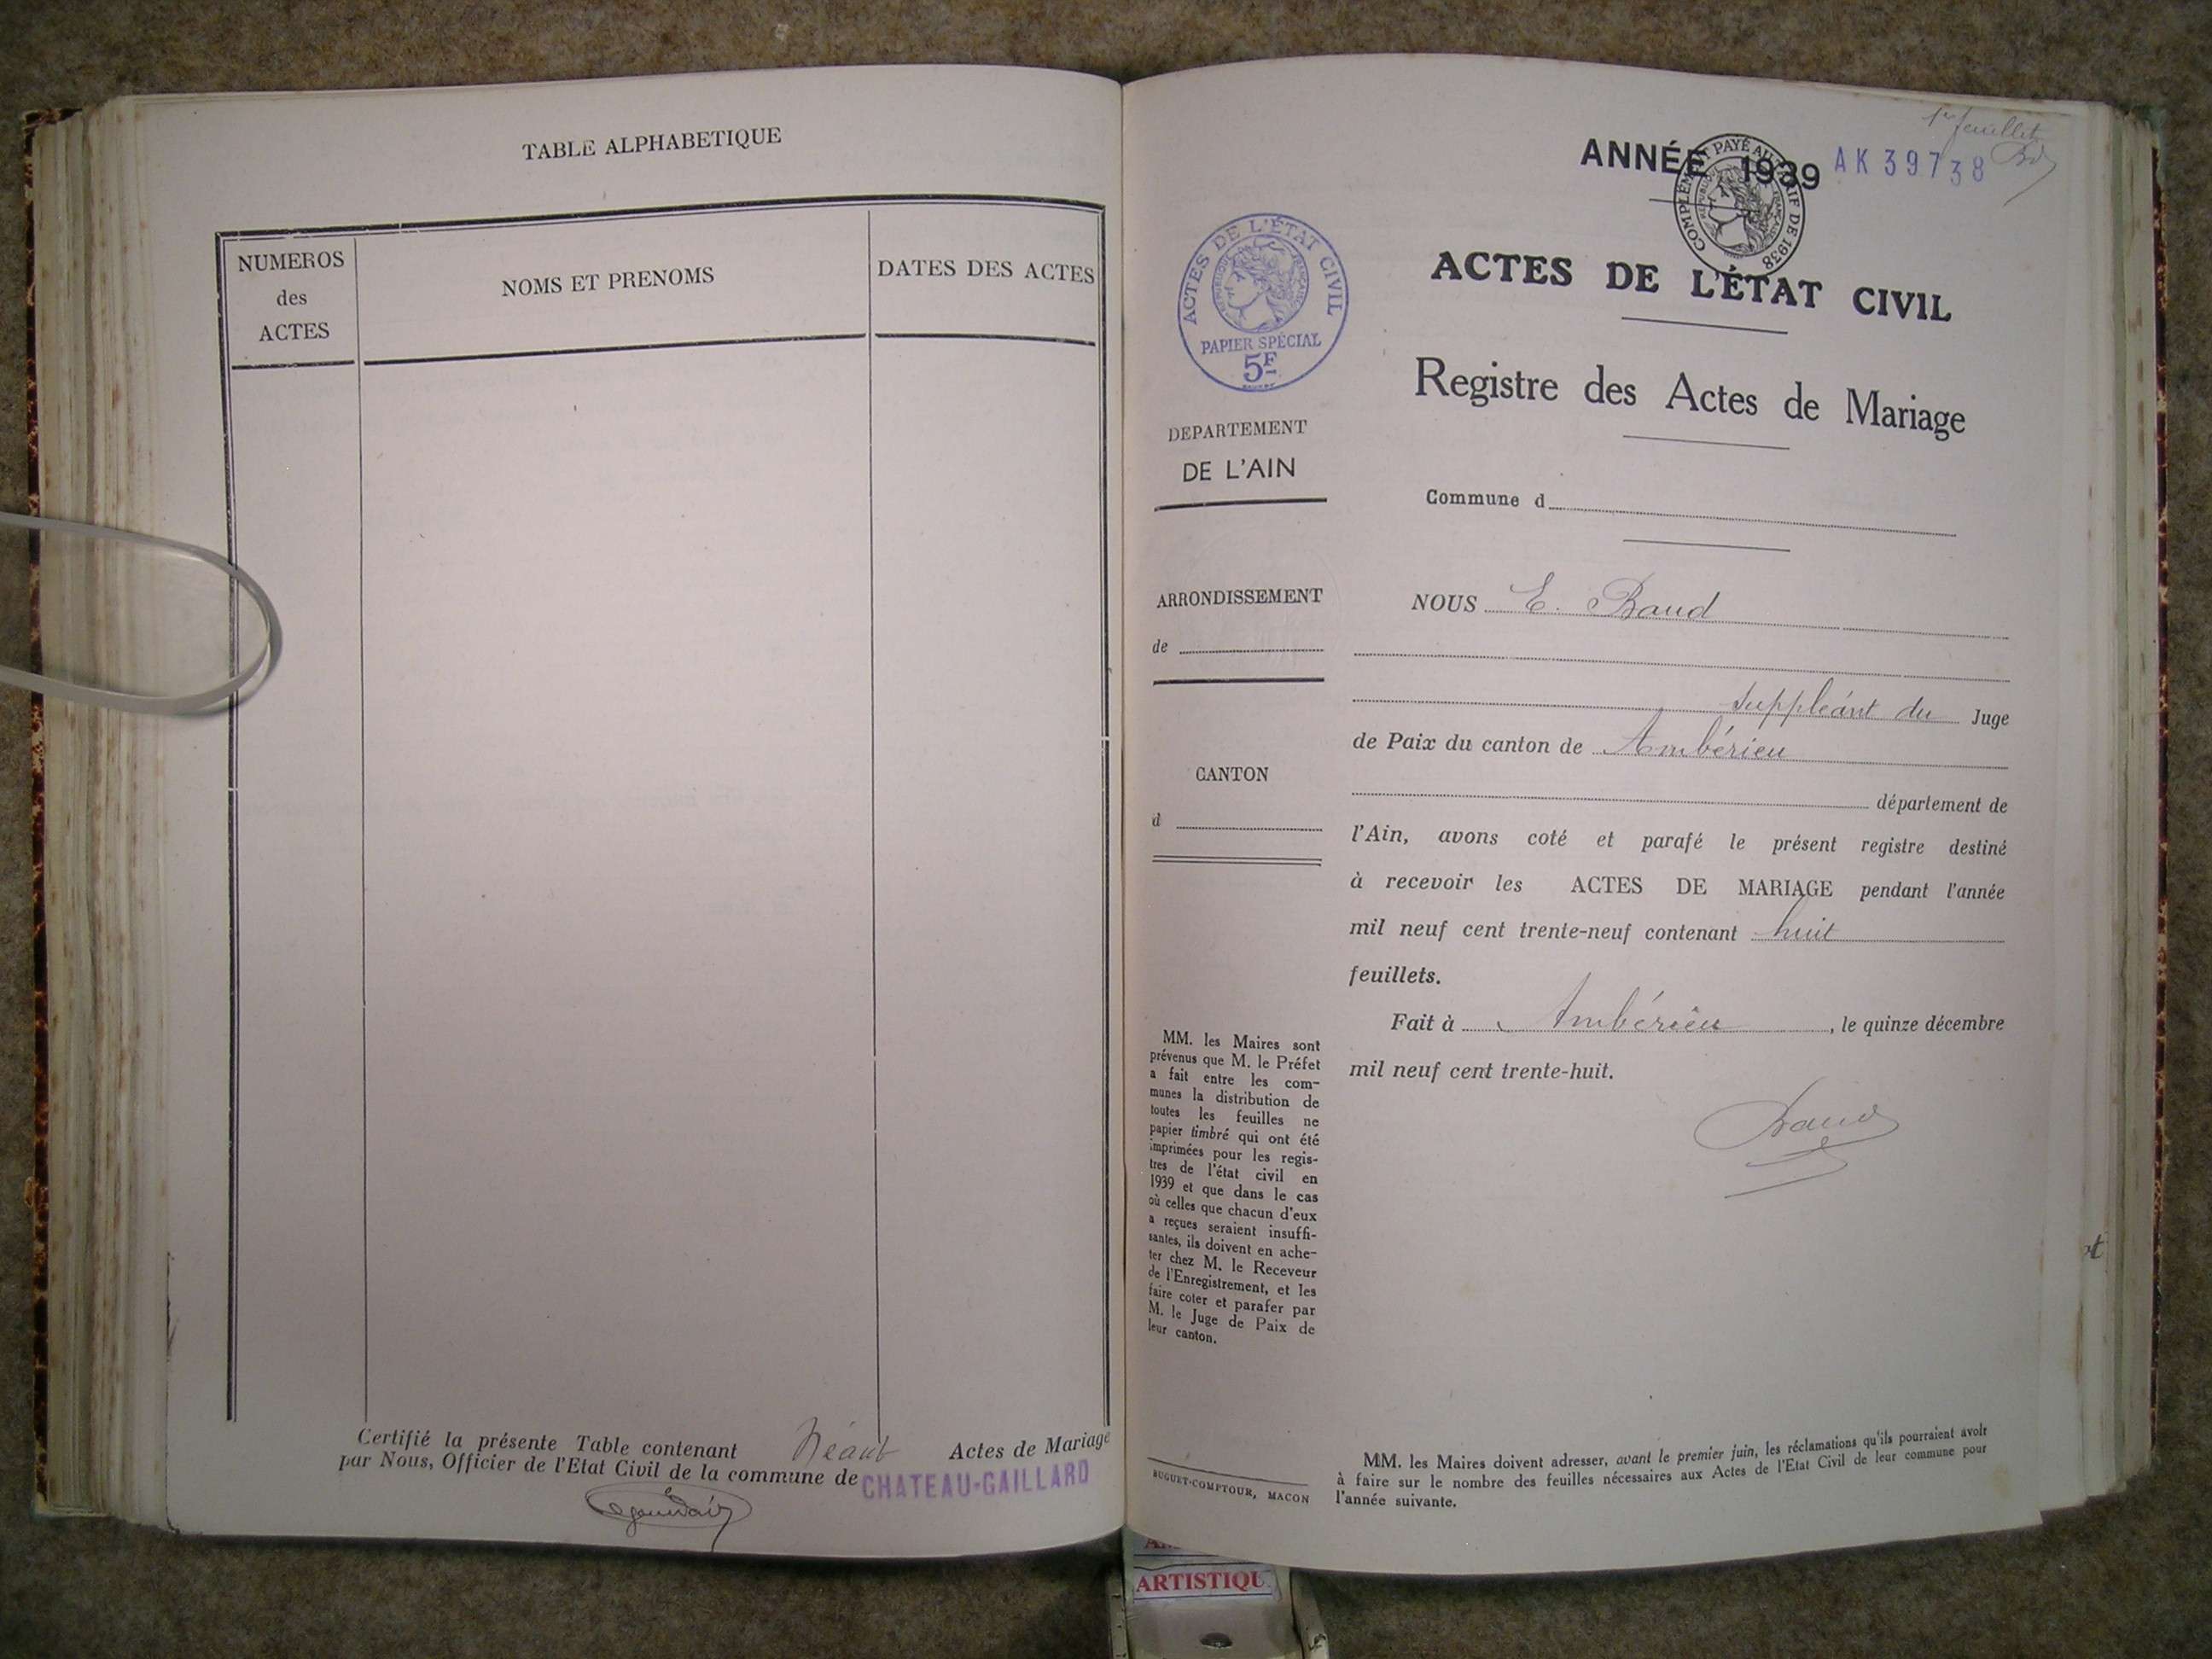 TABLE ALPHABETIQUE
NUMEROS
des
ACTES
NOMS ET PRENOMS
DATES DES ACTES
Certifié la présente Table contenant Néant Actes de Mariage
par Nous, Officier de l'Etat Civil de la commune de CHATEAU-GAILLARD
1er feuillet
Bd
ANNÉE 1939
AK 39738
COMPLÉMENT PAYÉ AU TARIF DE 1938
RÉPUBLIQUE FRANÇAISE
ACTES DE L'ÉTAT CIVIL
RÉPUBLIQUE FRANÇAISE
PAPIER SPÉCIAL
5F
DEPARTEMENT
DE L'AIN
ARRONDISSEMENT
de
CANTON
d
MM. les Maires sont
prévenus que M. le Préfet
a fait entre les com-
munes la distribution de
toutes les feuilles ne
papier timbré qui ont été
imprimées pour les regis-
tres de l'état civil en
1939 et que dans le cas
où celles que chacun d'eux
a reçues seraient insuffi-
santes, ils doivent en ache-
ter chez M. le Receveur
de l'Enregistrement, et les
faire coter et parafer par
M. le Juge de Paix de
leur canton.
BUGUET-COMPTOUR, MACON
ACTES DE L'ÉTAT CIVIL
Registre des Actes de Mariage
Commune d
NOUS E. Baud
suppléant du Juge
de Paix du canton de Ambérieu
département de
l'Ain, avons coté et parafé le présent registre destiné
à recevoir les ACTES DE MARIAGE pendant l'année
mil neuf cent trente-neuf contenant huit
feuillets.
Fait à Ambérieu, le quinze décembre
mil neuf cent trente-huit.
Baud
MM. les Maires doivent adresser, avant le premier juin, les réclamations qu'ils pourraient avoir
à faire sur le nombre des feuilles nécessaires aux Actes de l'Etat Civil de leur commune pour
l'année suivante.
ARTISTIQU